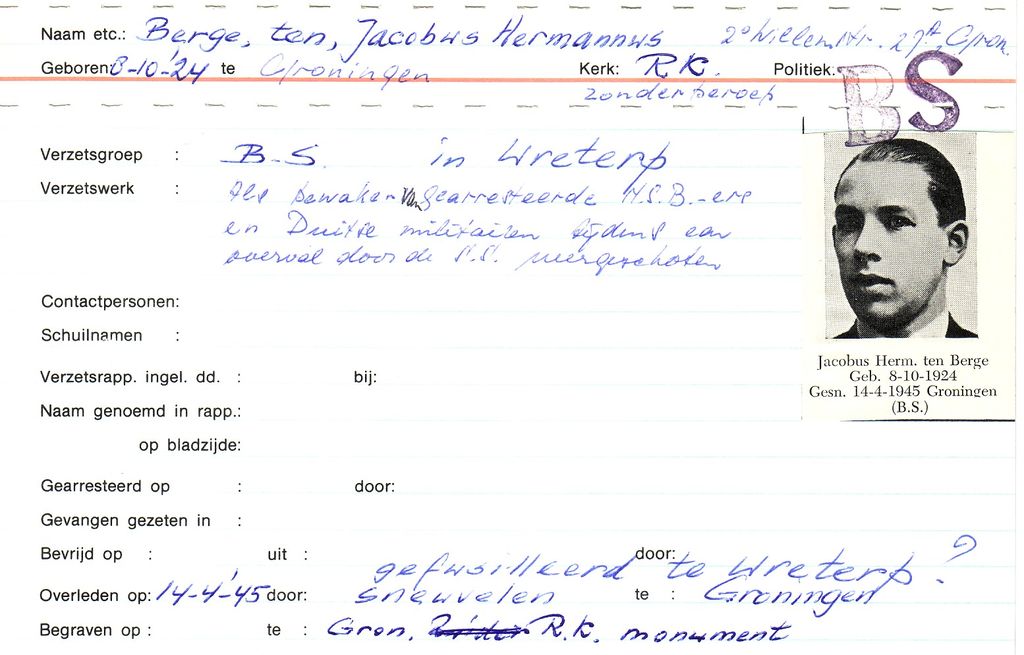 Naam etc.: Berge, ten, Jacobus Hermannus 2e Willemstr. 27A, Gron.
Geboren 8-10-'24 te Groningen Kerk: R.K. Politiek:
zonder beroep BS
Verzetsgroep : B.S. in Wreterp
Verzetswerk : Als bewaker van gearresteerde N.S.B.-ers
en Duitse militairen tijdens een
overval door de S.S. neergeschoten
Contactpersonen:
Schuilnamen :
Verzetsrapp. ingel. dd. : bij:
Naam genoemd in rapp.:
op bladzijde:
Jacobus Herm. ten Berge
Geb. 8-10-1924
Gesn. 14-4-1945 Groningen
(B.S.)
Gearresteerd op : door:
Gevangen gezeten in :
Bevrijd op : uit : door:
gefusilleerd te Wreterp ?
Overleden op: 14-4-'45 door: sneuvelen te : Groningen
Begraven op : te : Gron. R.K. monument